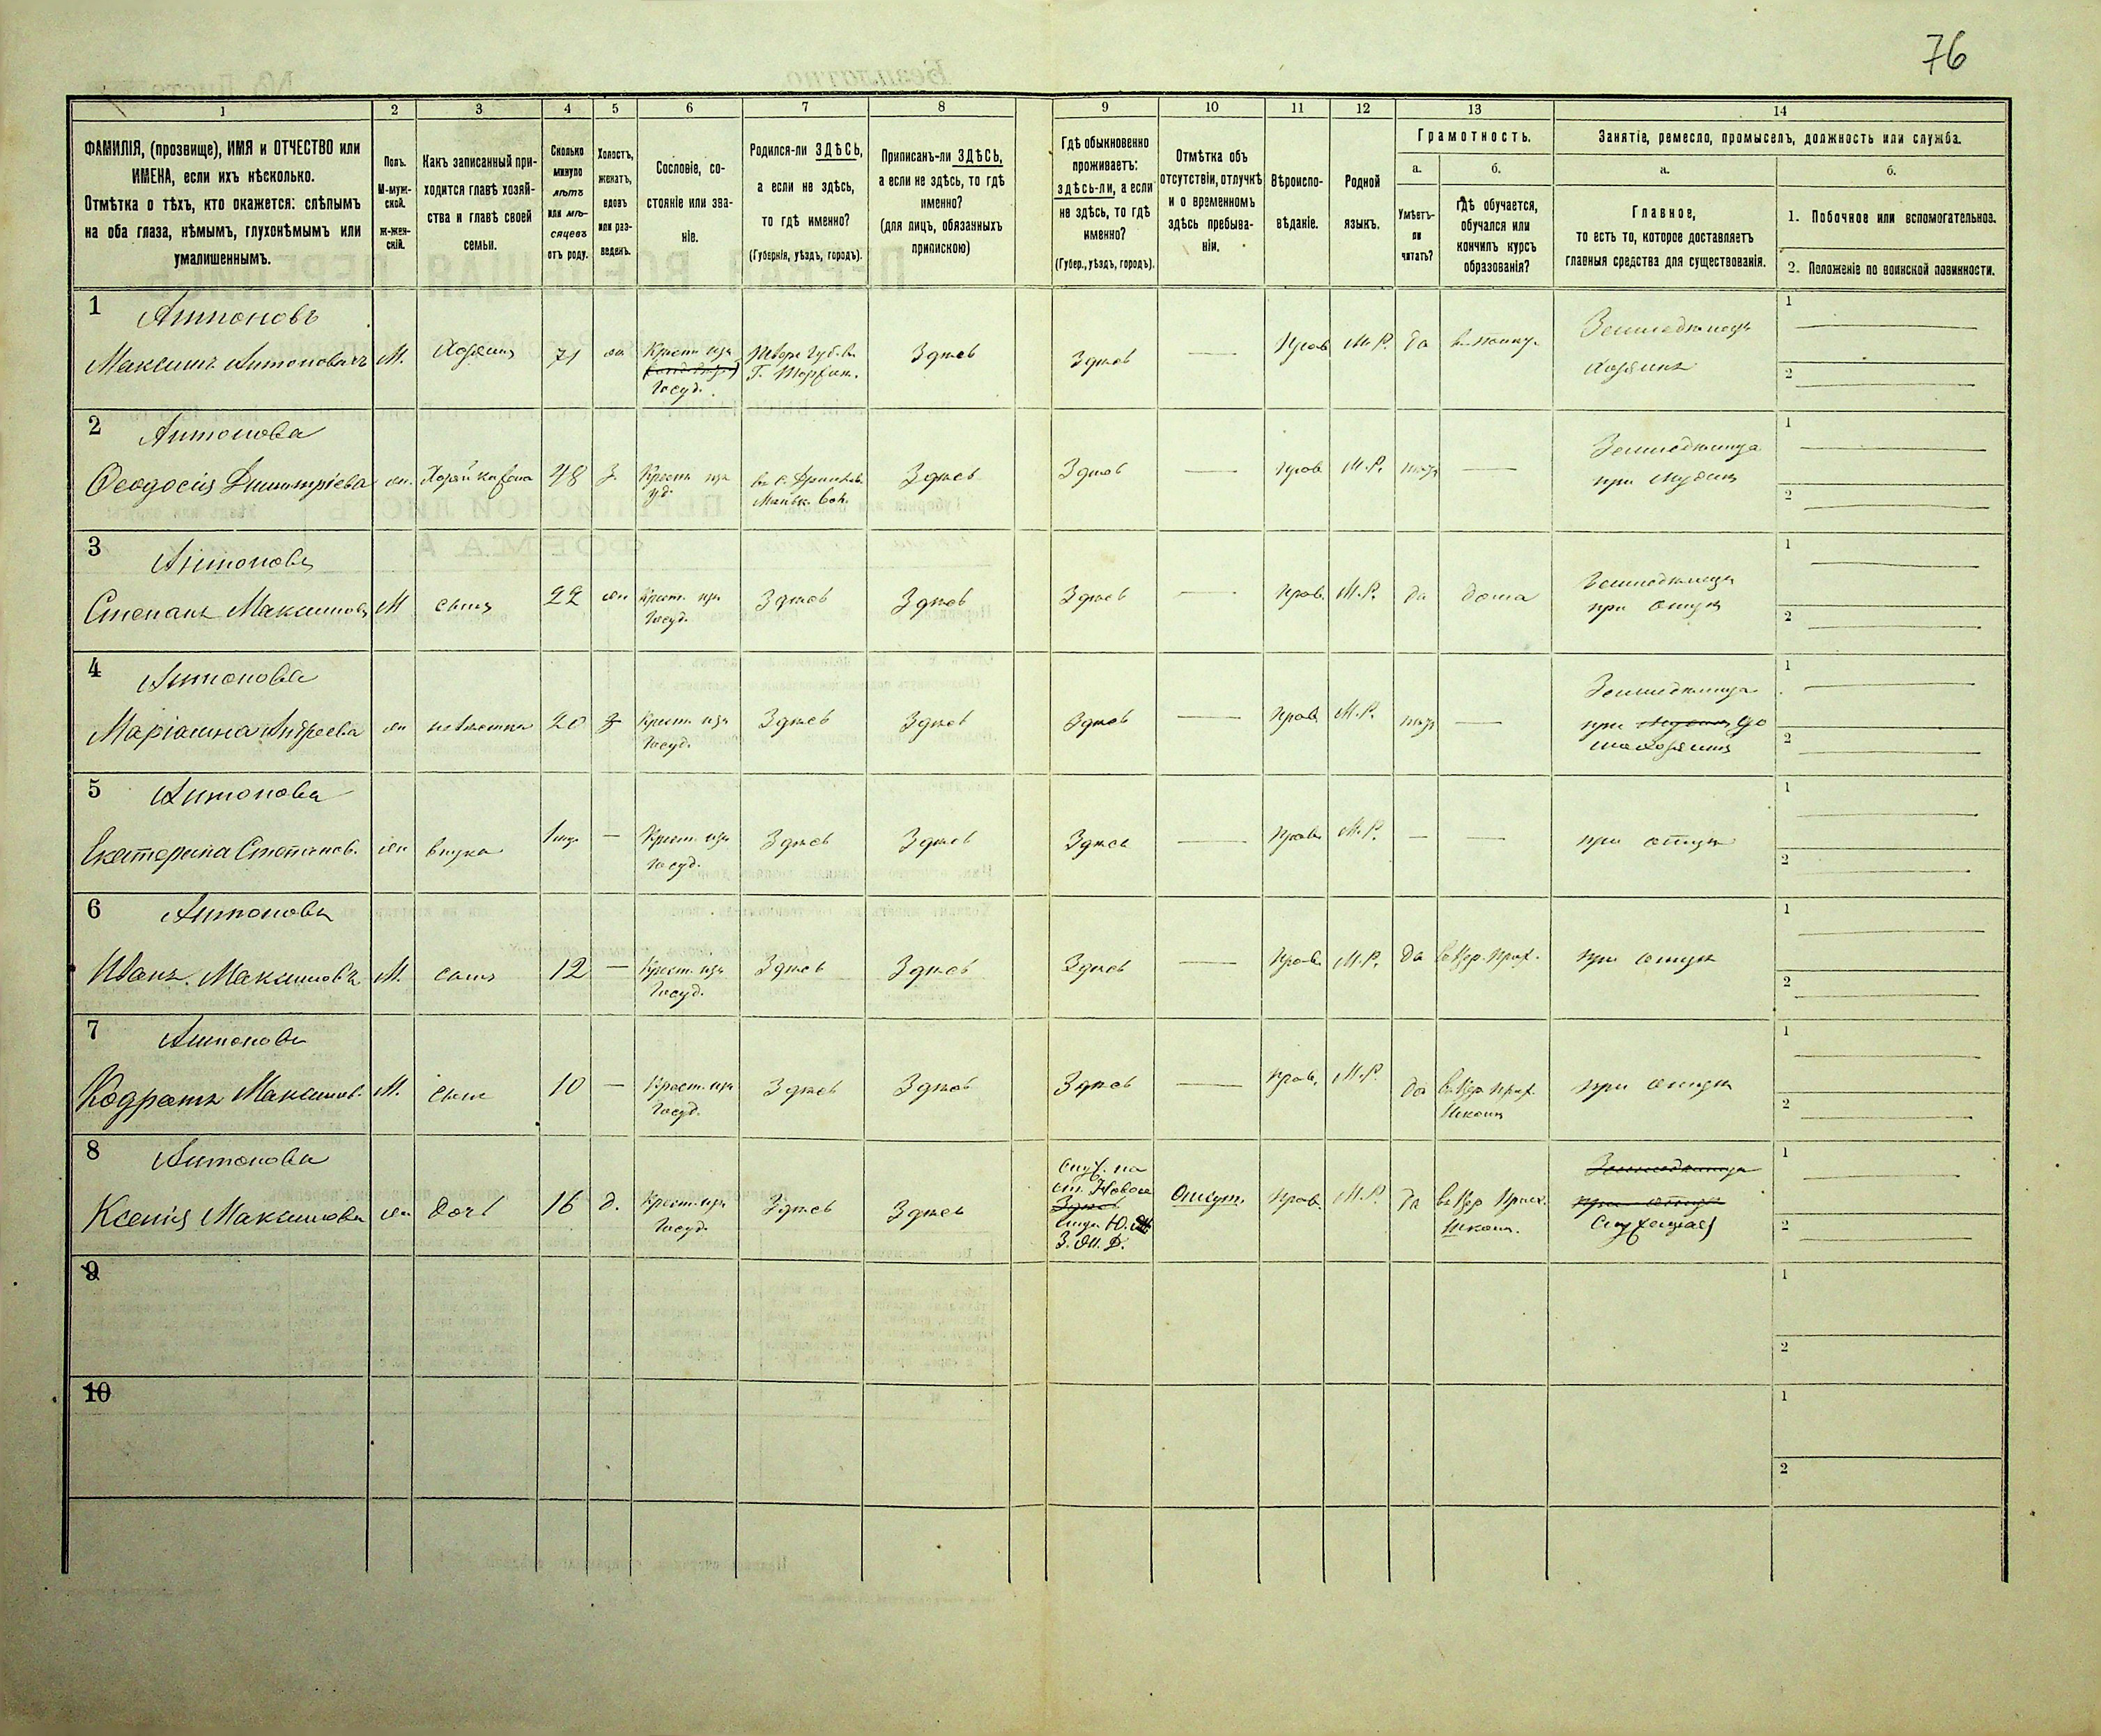 76
1
2
3
4
5
6
7
8
9
10
11
12
13
14
ФАМИЛІЯ, (прозвище), ИМЯ и ОТЧЕСТВО или
ИМЕНА, если ихъ нѣсколько.
Отмѣтка о тѣхъ, кто окажется: слѣпымъ
на оба глаза, нѣмымъ, глухонѣмымъ или
умалишеннымъ.
Полъ.
М-муж-
ской.
Ж-жен-
скій.
Какъ записанный при-
ходится главѣ хозяй-
ства и главѣ своей
семьи.
Сколько
минуло
лѣтъ
или мѣ-
сяцевъ
отъ роду.
Холостъ,
женатъ,
вдовъ
или раз-
веденъ.
Сословіе, со-
стояніе или зва-
ніе.
Родился-ли ЗДѢСЬ,
а если не здѣсь,
то гдѣ именно?
(Губернія, уѣздъ, городъ).
Приписанъ-ли ЗДѢСЬ,
а если не здѣсь, то гдѣ
именно?
(для лицъ, обязанныхъ
припискою)
Гдѣ обыкновенно
проживаетъ:
здѣсь-ли, а если
не здѣсь, то гдѣ
именно?
(Губер., уѣздъ, городъ).
Отмѣтка объ
отсутствіи, отлучкѣ
и о временномъ
здѣсь пребыва-
ніи.
Вѣроиспо-
вѣданіе.
Родной
языкъ.
Грамотность.
а.
Умѣетъ-
ли
читать?
б.
Гдѣ обучается,
обучался или
кончилъ курсъ
образованія?
Занятіе, ремесло, промыселъ, должность или служба.
а.
Главное,
то есть то, которое доставляетъ
главныя средства для существованія.
б.
1. Побочное или вспомогательное.
2. Положеніе по воинской повинности.
1
Антоновъ
Максимъ Антоновичъ
М.
Хозяинъ
71
Госуд.
Здѣсь
Здѣсь
М.Р.
да
Земледѣлецъ
хозяинъ
1
2
2
Антонова
Ѳеодосія Димитріева
48
З.
Здѣсь
Здѣсь
Прав.
М.Р.
Земледѣлица
при мужѣ
1
2
3
Антоновъ
Степанъ Максимовъ
М
сынъ
22
Крест. изъ
Госуд.
Здѣсь
Здѣсь
Здѣсь
Прав.
М.Р.
да
дома
Земледѣлецъ
при отцѣ
1
2
4
Антонова
Маріамна Андреева
невѣстка
20
з
Крест. изъ
Госуд.
Здѣсь
Здѣсь
Здѣсь
Прав.
М.Р.
Земледѣлица
1
2
5
Антонова
Екатерина Степанов.
внука
Крест. изъ
Госуд.
Здѣсь
Здѣсь
Здѣсь
Прав.
М.Р.
при отцѣ
1
2
6
Антоновъ
Иванъ Максимовъ
М.
сынъ
12
Крест. изъ
Госуд.
Здѣсь
Здѣсь
Здѣсь
Прав.
М.Р.
да
при отцѣ
1
2
7
Антоновъ
Кодратъ Максимов.
М.
сынъ
10
Крест. изъ
Госуд.
Здѣсь
Здѣсь
Здѣсь
Прав.
М.Р.
да
Школѣ
при отцѣ
1
2
8
Антонова
Ксенія Максимова
дочь
16
д.
Крест. изъ
Госуд.
Здѣсь
Здѣсь
Отсут.
Прав.
М.Р.
да
Школѣ
1
2
9
1
2
10
1
2